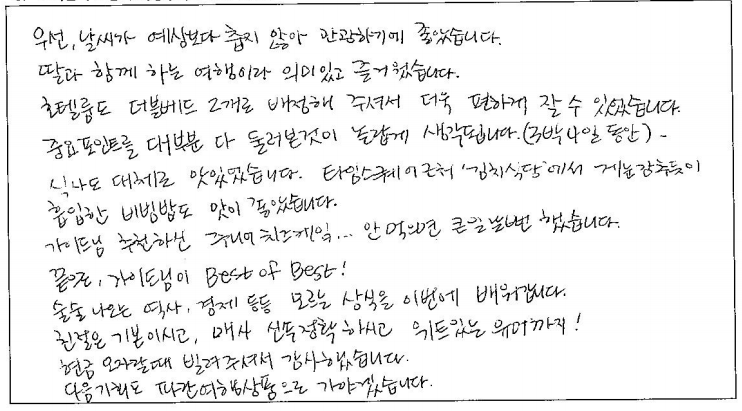 우선, 날씨가 예상보다 춥지 않아 관광하기에 좋았습니다.
딸과 함께 하는 여행이라 의미있고 즐거웠습니다.
호텔룸도 더블베드 2개로 배정해 주셔서 더욱 편하게 잘 수 있었습니다.
중요포인트를 대부분 다 둘러본것이 놀랍게 생각됩니다.(3박4일 동안)-
식사도 대체로 맛있었습니다. 타임스퀘어근처 '김치식당'에서 게눈감추듯이
흡입한 비빔밥도 맛이 좋았습니다.
가이드님 추천하신 주니어치즈케익... 안먹으면 큰일날뻔 했습니다.
끝으로, 가이드님이 Best of Best!
술술 나오는 역사, 경제 등등 모르는 상식을 이번에 배워갑니다.
친절은 기본이시고, 매사 선투정확하시고 위트있는 유머까지!
현금 모자랄때 빌려주셔서 감사했습니다.
다음기회도 파란여행상품으로 가야겠습니다.